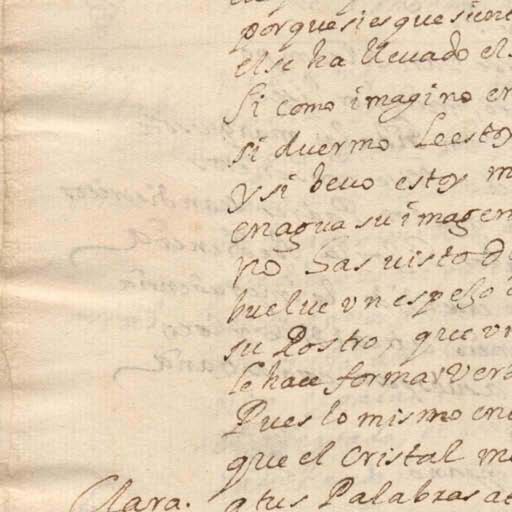 porque si es que sient
el se ha lleuado el
Si como imagino en
si duermo Le estoy
y si beuo estoy m
en agua su imagen
no has uisto d
buelue vn espejo
su Rostro, que vi
le hace formar Verd
Pues lo mismo en
que el Cristal m
Clara. a tus Palabras at